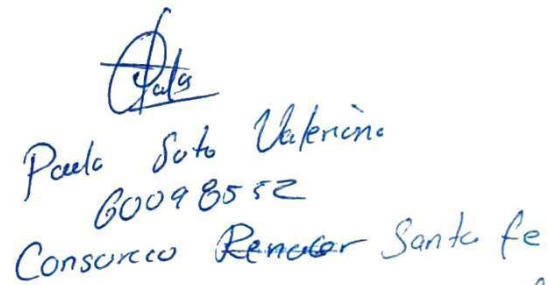 Paula Soto Valeriano
60098552
Consorcio Renacer Santa fe